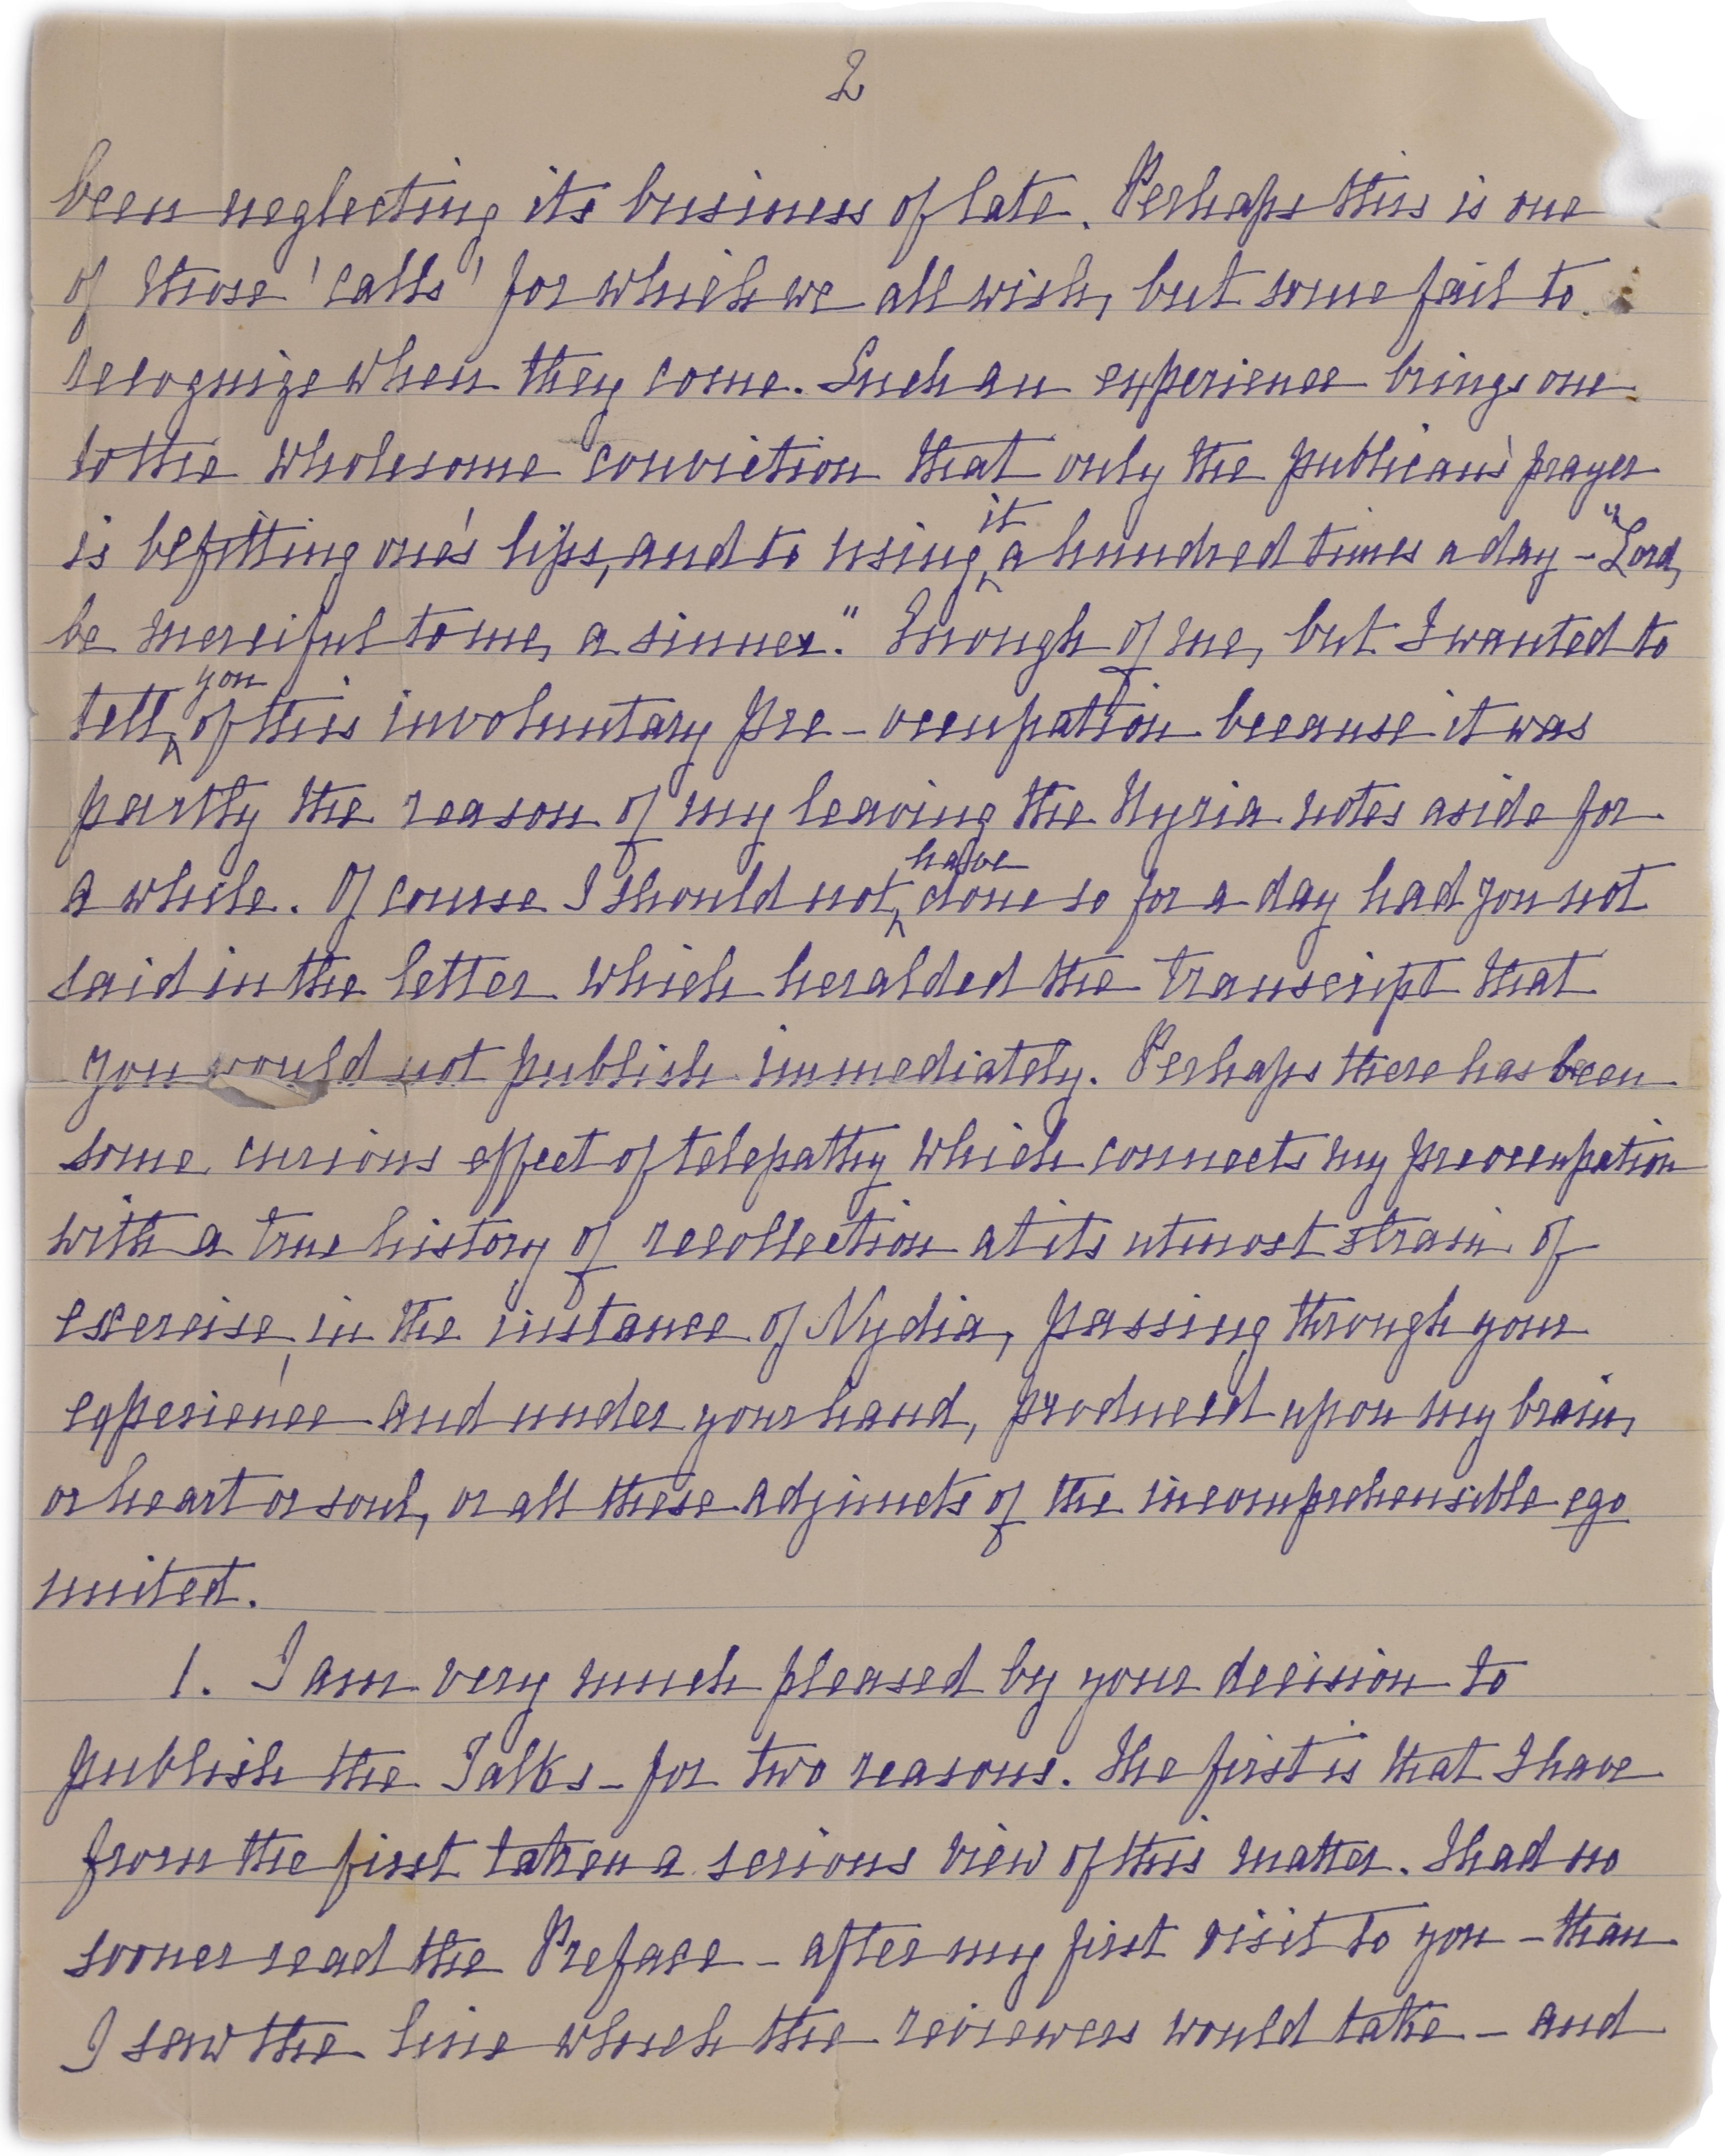 2
been neglecting its business of late. Perhaps this is one
of those 'calls' for which we all wish, but some fail to
recognize when they come. Such an experience brings one
to the wholesome conviction that only the publican's prayer
is befitting one's lips, and to using it a hundred times a day – "Lord,
be merciful to me, a sinner." Enough of me, but I wanted to
tell you of this involuntary pre-occupation because it was
partly the reason of my leaving the Nyria notes aside for
a while. Of course I should not have done so for a day had you not
said in the letter which heralded the transcript that
you would not publish immediately. Perhaps there has been
some curious effect of telepathy which connects my preoccupation
with a true history of recollection at its utmost strain of
exercise, in the instance of Nydia, passing through your
experience and under your hand, produced upon my brain,
or heart or soul, or all these adjuncts of the incomprehensible ego
united.
1. I am very much pleased by your decision to
publish the Talks – for two reasons. The first is that I have
from the first taken a serious view of this matter. I had no
sooner read the Preface – after my first visit to you – than
I saw the line which the reviewers would take – and